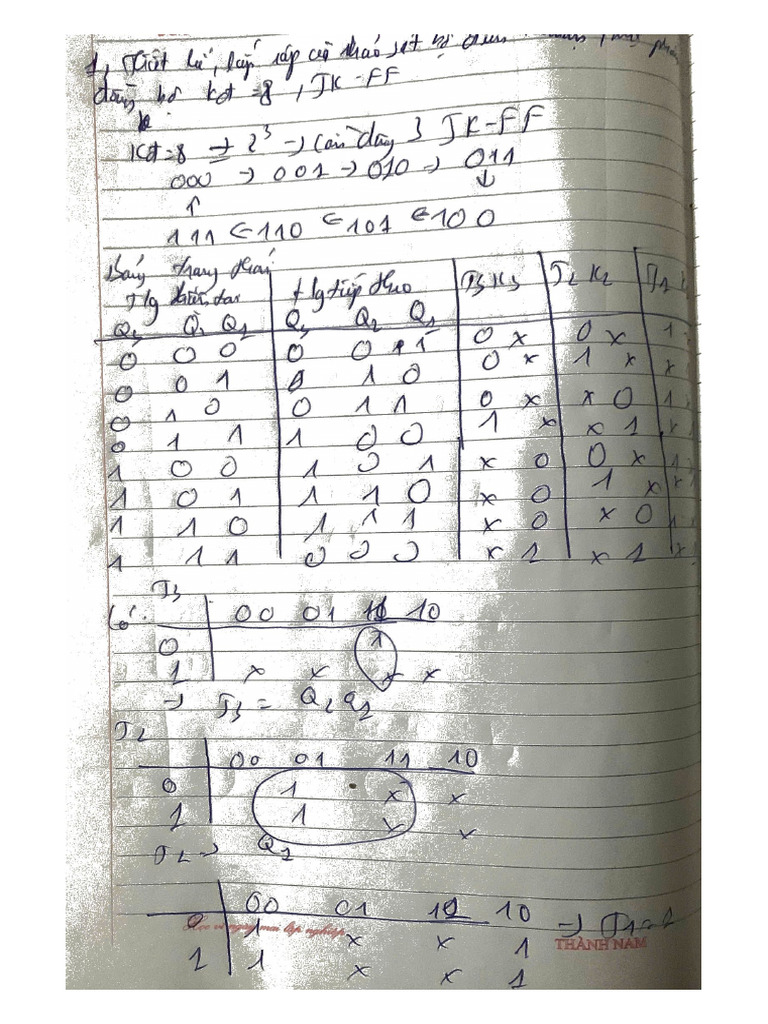 1, Thiết kế, lắp ráp và khảo sát bộ đếm
đồng bộ Kđ = 8, JK-FF
Kđ = 8 → 2³ → Cần dùng 3 JK-FF
000 → 001 → 010 → 011
↑ ↓
111 ← 110 ← 101 ← 100
Bảng trạng thái
t/g hiện tại t/g tiếp theo J3 K3 J2 K2 J1
Q3 Q2 Q1 Q3 Q2 Q1
0 0 0 0 0 1 0 x 0 x 1
0 0 1 0 1 0 0 x 1 x x
0 1 0 0 1 1 0 x x 0 1
0 1 1 1 0 0 1 x x 1 x
1 0 0 1 0 1 x 0 0 x 1
1 0 1 1 1 0 x 0 1 x x
1 1 0 1 1 1 x 0 x 0 1
1 1 1 0 0 0 x 1 x 1 x
Có: J3 00 01 11 10
0 1
1 x x x x
→ J3 = Q2 Q1
J2
00 01 11 10
0 1 x x
1 1 x x
J2 → Q1
00 01 11 10 → J1 = 1
0 1 x x 1
Học vì ngày mai lập nghiệp
THÀNH NAM
1 1 x x 1